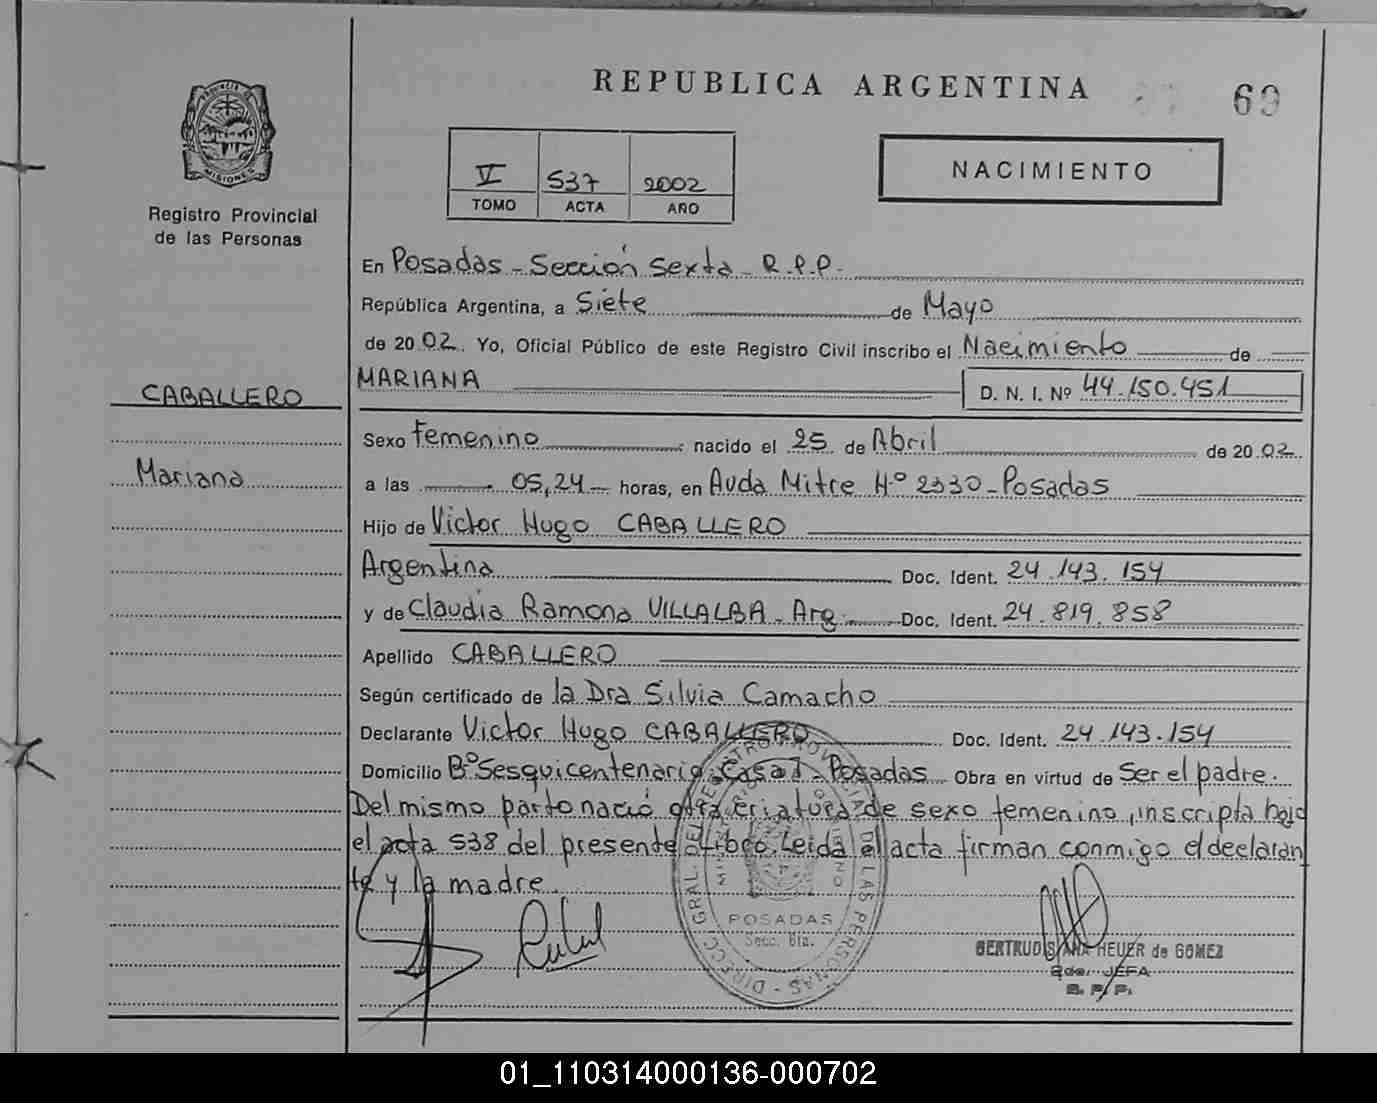 REPUBLICA ARGENTINA
69
PROVINCIA DE
MISIONES
Registro Provincial
de las Personas
V 537 2002
TOMO ACTA AÑO
NACIMIENTO
En Posadas - Sección Sexta - R.P.P.
República Argentina, a Siete de Mayo
de 2002. Yo, Oficial Público de este Registro Civil inscribo el Nacimiento de
MARIANA D. N. I. Nº 44.150.451
CABALLERO
Mariana
Sexo Femenino nacido el 25 de Abril de 2002.
a las 05,24 horas, en Avda Mitre Nº 2330 - Posadas
Hijo de Victor Hugo CABALLERO
Argentina Doc. Ident. 24.143.154
y de Claudia Ramona VILLALBA - Arg. Doc. Ident. 24.819.858
Apellido CABALLERO
Según certificado de la Dra Silvia Camacho
Declarante Victor Hugo CABALLERO Doc. Ident. 24.143.154
Domicilio Bº Sesquicentenario - Casa 7 - Posadas Obra en virtud de Ser el padre.
Del mismo parto nació otra criatura de sexo femenino, inscripta bajo
el acta 538 del presente Libro. Leida el acta firman conmigo el declaran
te y la madre.
POSADAS
Secc. 6ta.
GERTRUDIS ANA HEUER de GOMEZ
2da. JEFA
R. P. P.
01_110314000136-000702